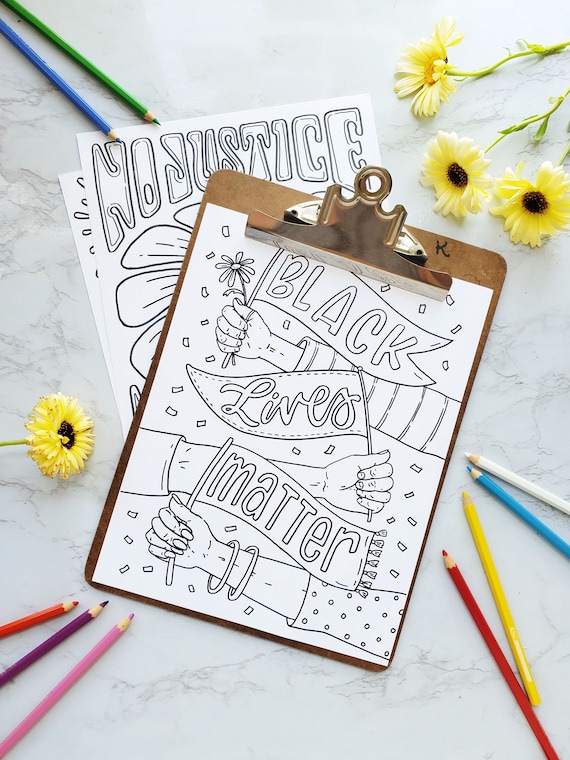 NO JUSTICE
K
BLACK
Lives
matter